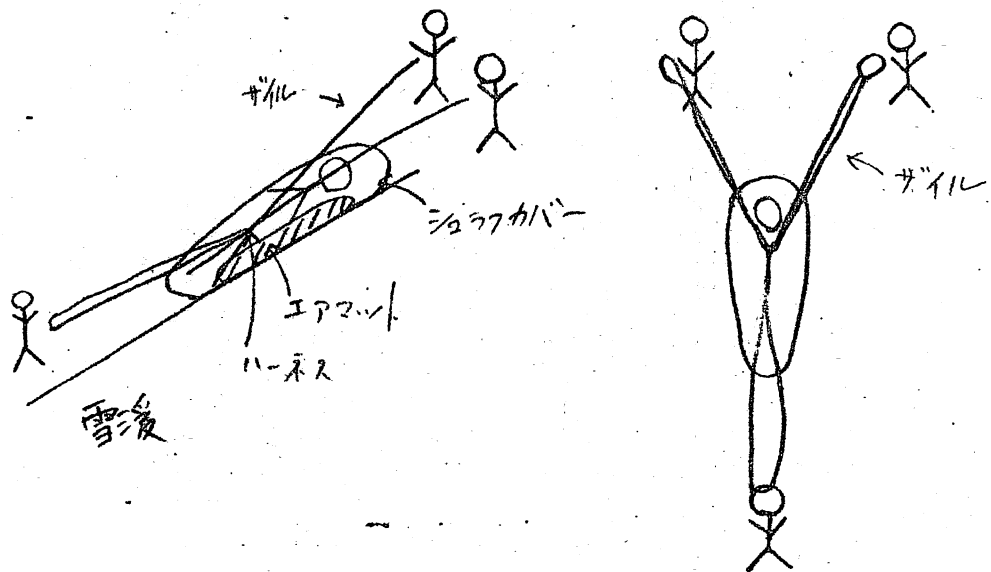 ザイル
シュラフカバー
エアマット
ハーネス
雪渓
ザイル